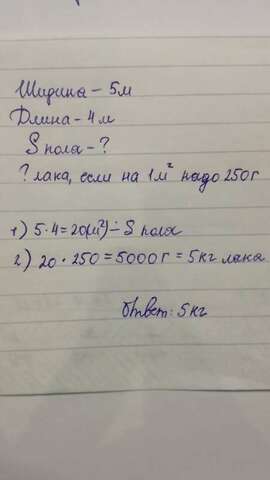 Ширина - 5м
Длина - 4м
S пола - ?
? лака, если на 1м² надо 250г
1) 5·4=20(м²) - S пола
2) 20·250=5000г=5кг лака
Ответ: 5кг